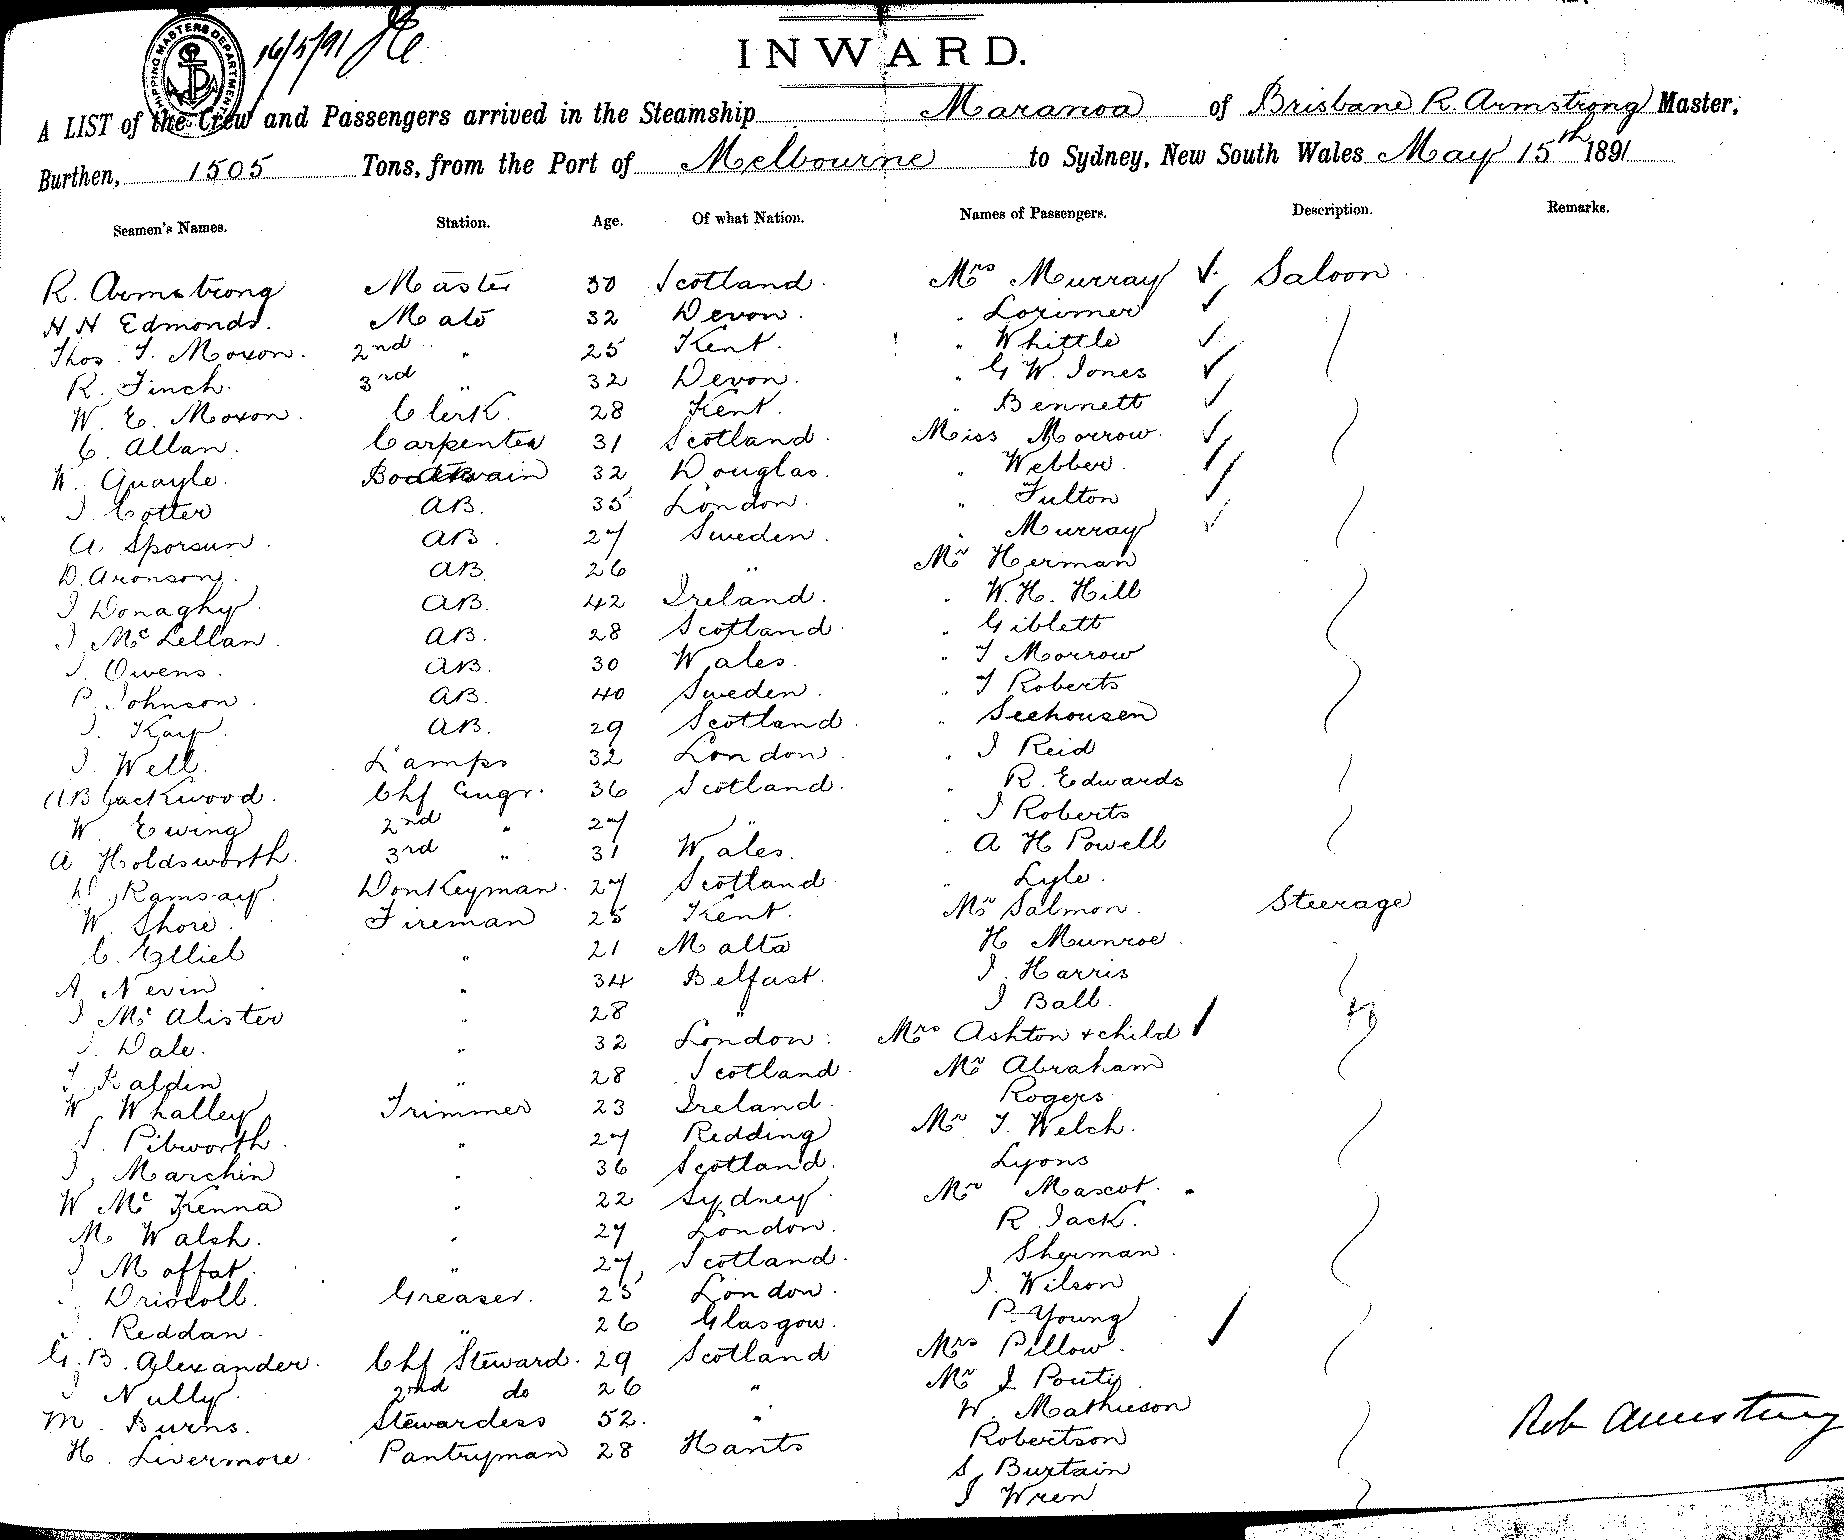 SHIPPING MASTERS DEPARTMENT
16/5/91
INWARD.
A LIST of the Crew and Passengers arrived in the Steamship Maranoa of Brisbane R. Armstrong Master,
Burthen, 1505 Tons, from the Port of Melbourne to Sydney, New South Wales May 15th 1891
Seamen's Names. Station. Age. Of what Nation. Names of Passengers. Description. Remarks.
R. Armstrong Master 30 Scotland. Mrs Murray Saloon
H H Edmonds. Mate 32 Devon. " Lorimer
Thos. J. Moxon. 2nd " 25 Kent. " Whittle
R. Finch. 3rd " 32 Devon. " G W. Jones
W. E. Moxon. Clerk. 28 Kent. " Bennett
C. Allan. Carpenter 31 Scotland. Miss Morrow.
W. Quayle. Boatswain 32 Douglas. " Webber.
J. Cotter AB. 35 London. " Fulton
A. Sporsun. AB. 27 Sweden. " Murray
D. Aronson. AB. 26 " Mr Herman
J Donaghy. AB. 42 Ireland. " W. H. Hill
J McLellan. AB. 28 Scotland. " Giblett
J. Owens. AB. 30 Wales. " J Morrow
P. Johnson. AB. 40 Sweden. " J Roberts
J. Kay. AB. 29 Scotland. " Seehousen
J. Well. Lamps 32 London. " J Reid
A Blackwood. Chf Engr. 36 Scotland. " R. Edwards
W. Ewing 2nd " 27 " " J Roberts
A Holdsworth. 3rd " 31 Wales. " A H Powell
D. Ramsay. Donkeyman. 27 Scotland " Lyle.
W. Shore. Fireman 25 Kent. Mr Salmon. Steerage
C. Elliel " 21 Malta H Munroe.
A. Nevin " 34 Belfast. J. Harris
J McAlister " 28 " J Ball.
J. Dale. " 32 London. Mrs Ashton + child
J. " 28 Scotland. Mr Abraham
W. Whalley Trimmer 23 Ireland. Rogers
S. Pibworth. " 27 Redding Mr J. Welch.
J. Marchin " 36 Scotland. Lyons
W McKenna " 22 Sydney. Mr Mascot.
M. Walsh. " 27 London. R. Jack.
J Moffat. " 27 Scotland. Sherman.
J. Driscoll. Greaser. 25 London. J. Wilson
J. Reddan. " 26 Glasgow. P. Young
G. B. Alexander. Chf Steward. 29 Scotland Mrs Pillow.
J Nully. 2nd do 26 " Mr J
M. Burns. Stewardess 52. " W. Mathieson
H. Livermore. Pantryman 28 Hants Robertson
S. Burtain
J Wren
Rob Armstrong